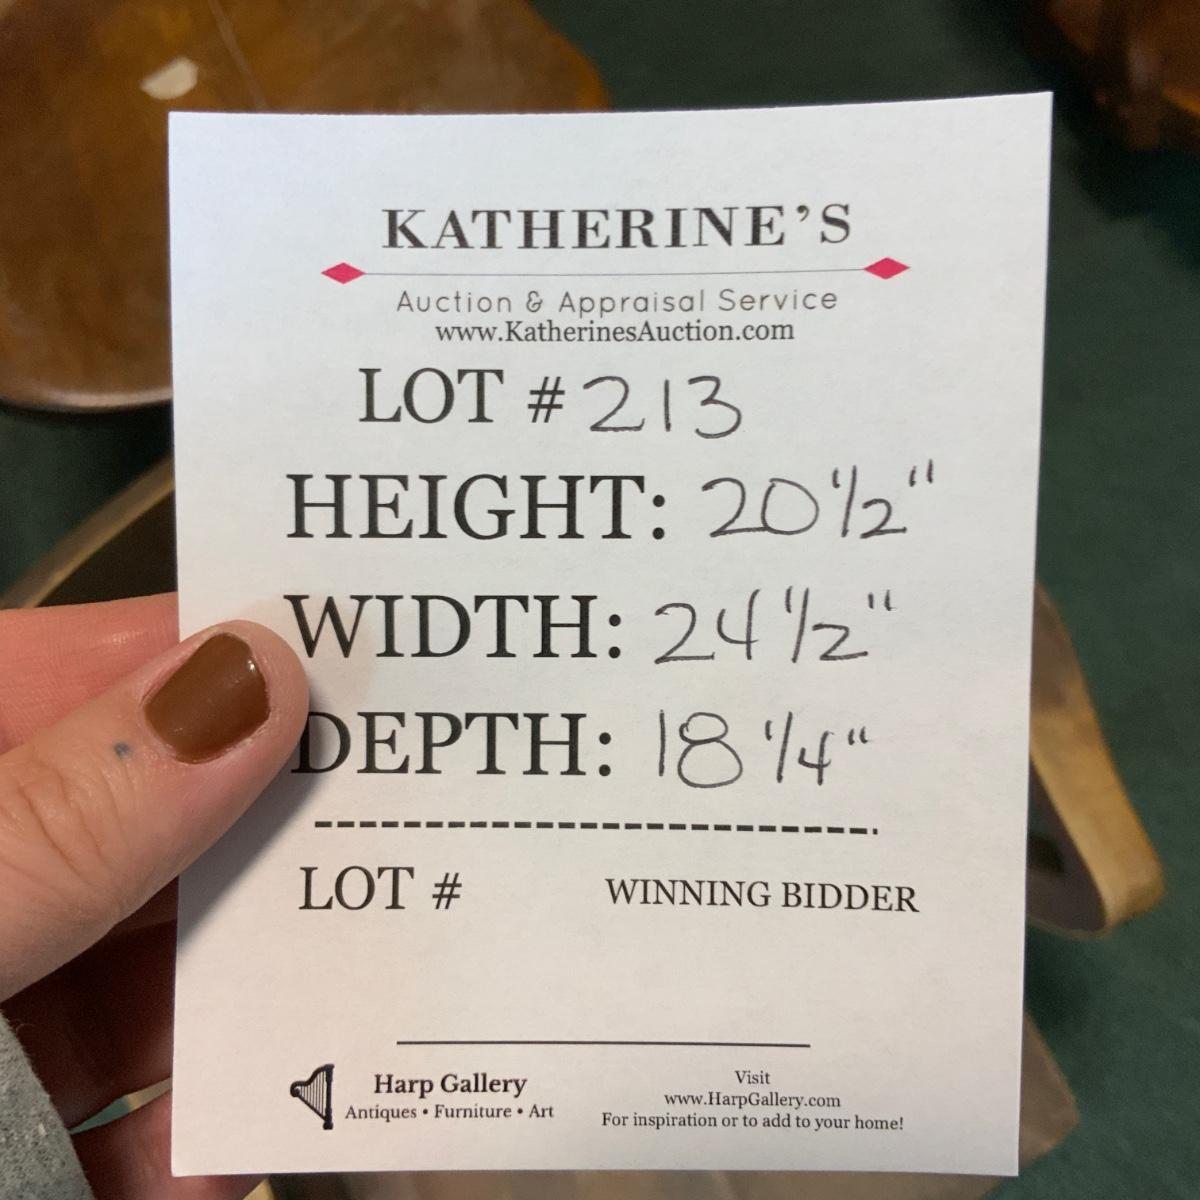 KATHERINE'S
Auction & Appraisal Service
www.KatherinesAuction.com
LOT # 213
HEIGHT: 20 1/2"
WIDTH: 24 1/2"
DEPTH: 18 1/4"
LOT # WINNING BIDDER
Harp Gallery
Antiques • Furniture • Art
Visit
www.HarpGallery.com
For inspiration or to add to your home!